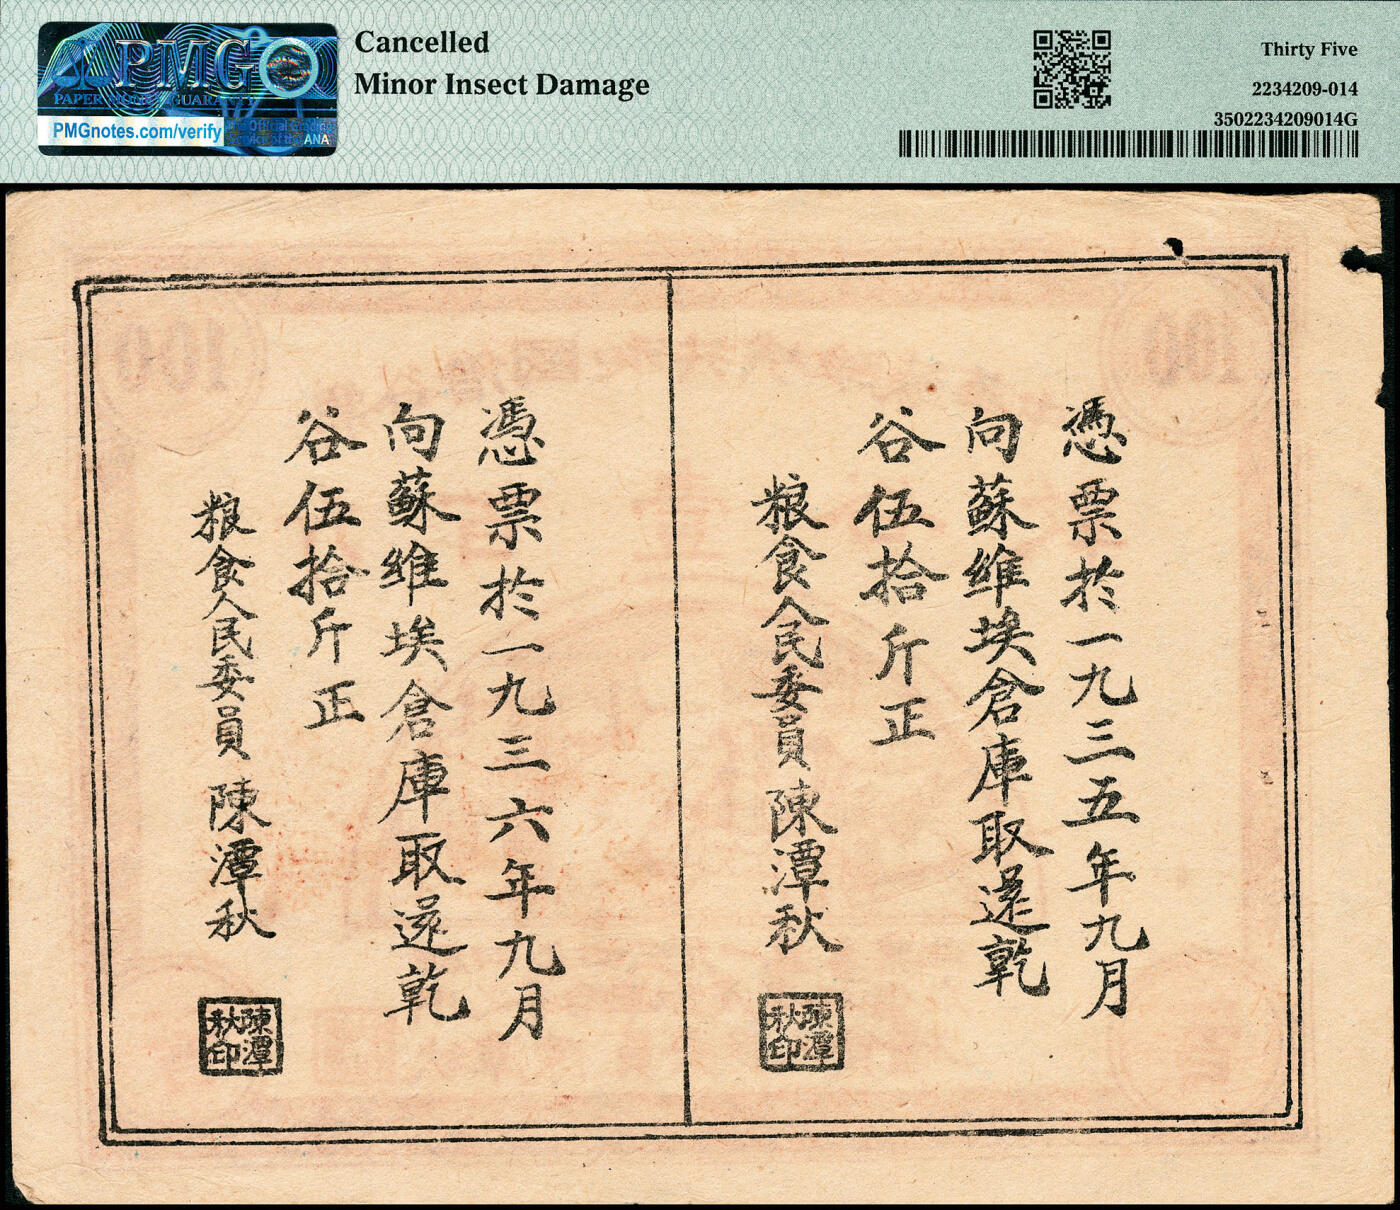 PMG
PAPER MONEY GUARANTY
PMGnotes.com/verify
ANA
Cancelled
Minor Insect Damage
Thirty Five
2234209-014
3502234209014G
憑票於一九三五年九月
向蘇維埃倉庫取還乾
谷伍拾斤正
粮食人民委員陳潭秋
陳潭秋印
憑票於一九三六年九月
向蘇維埃倉庫取還乾
谷伍拾斤正
粮食人民委員陳潭秋
陳潭秋印
100
100